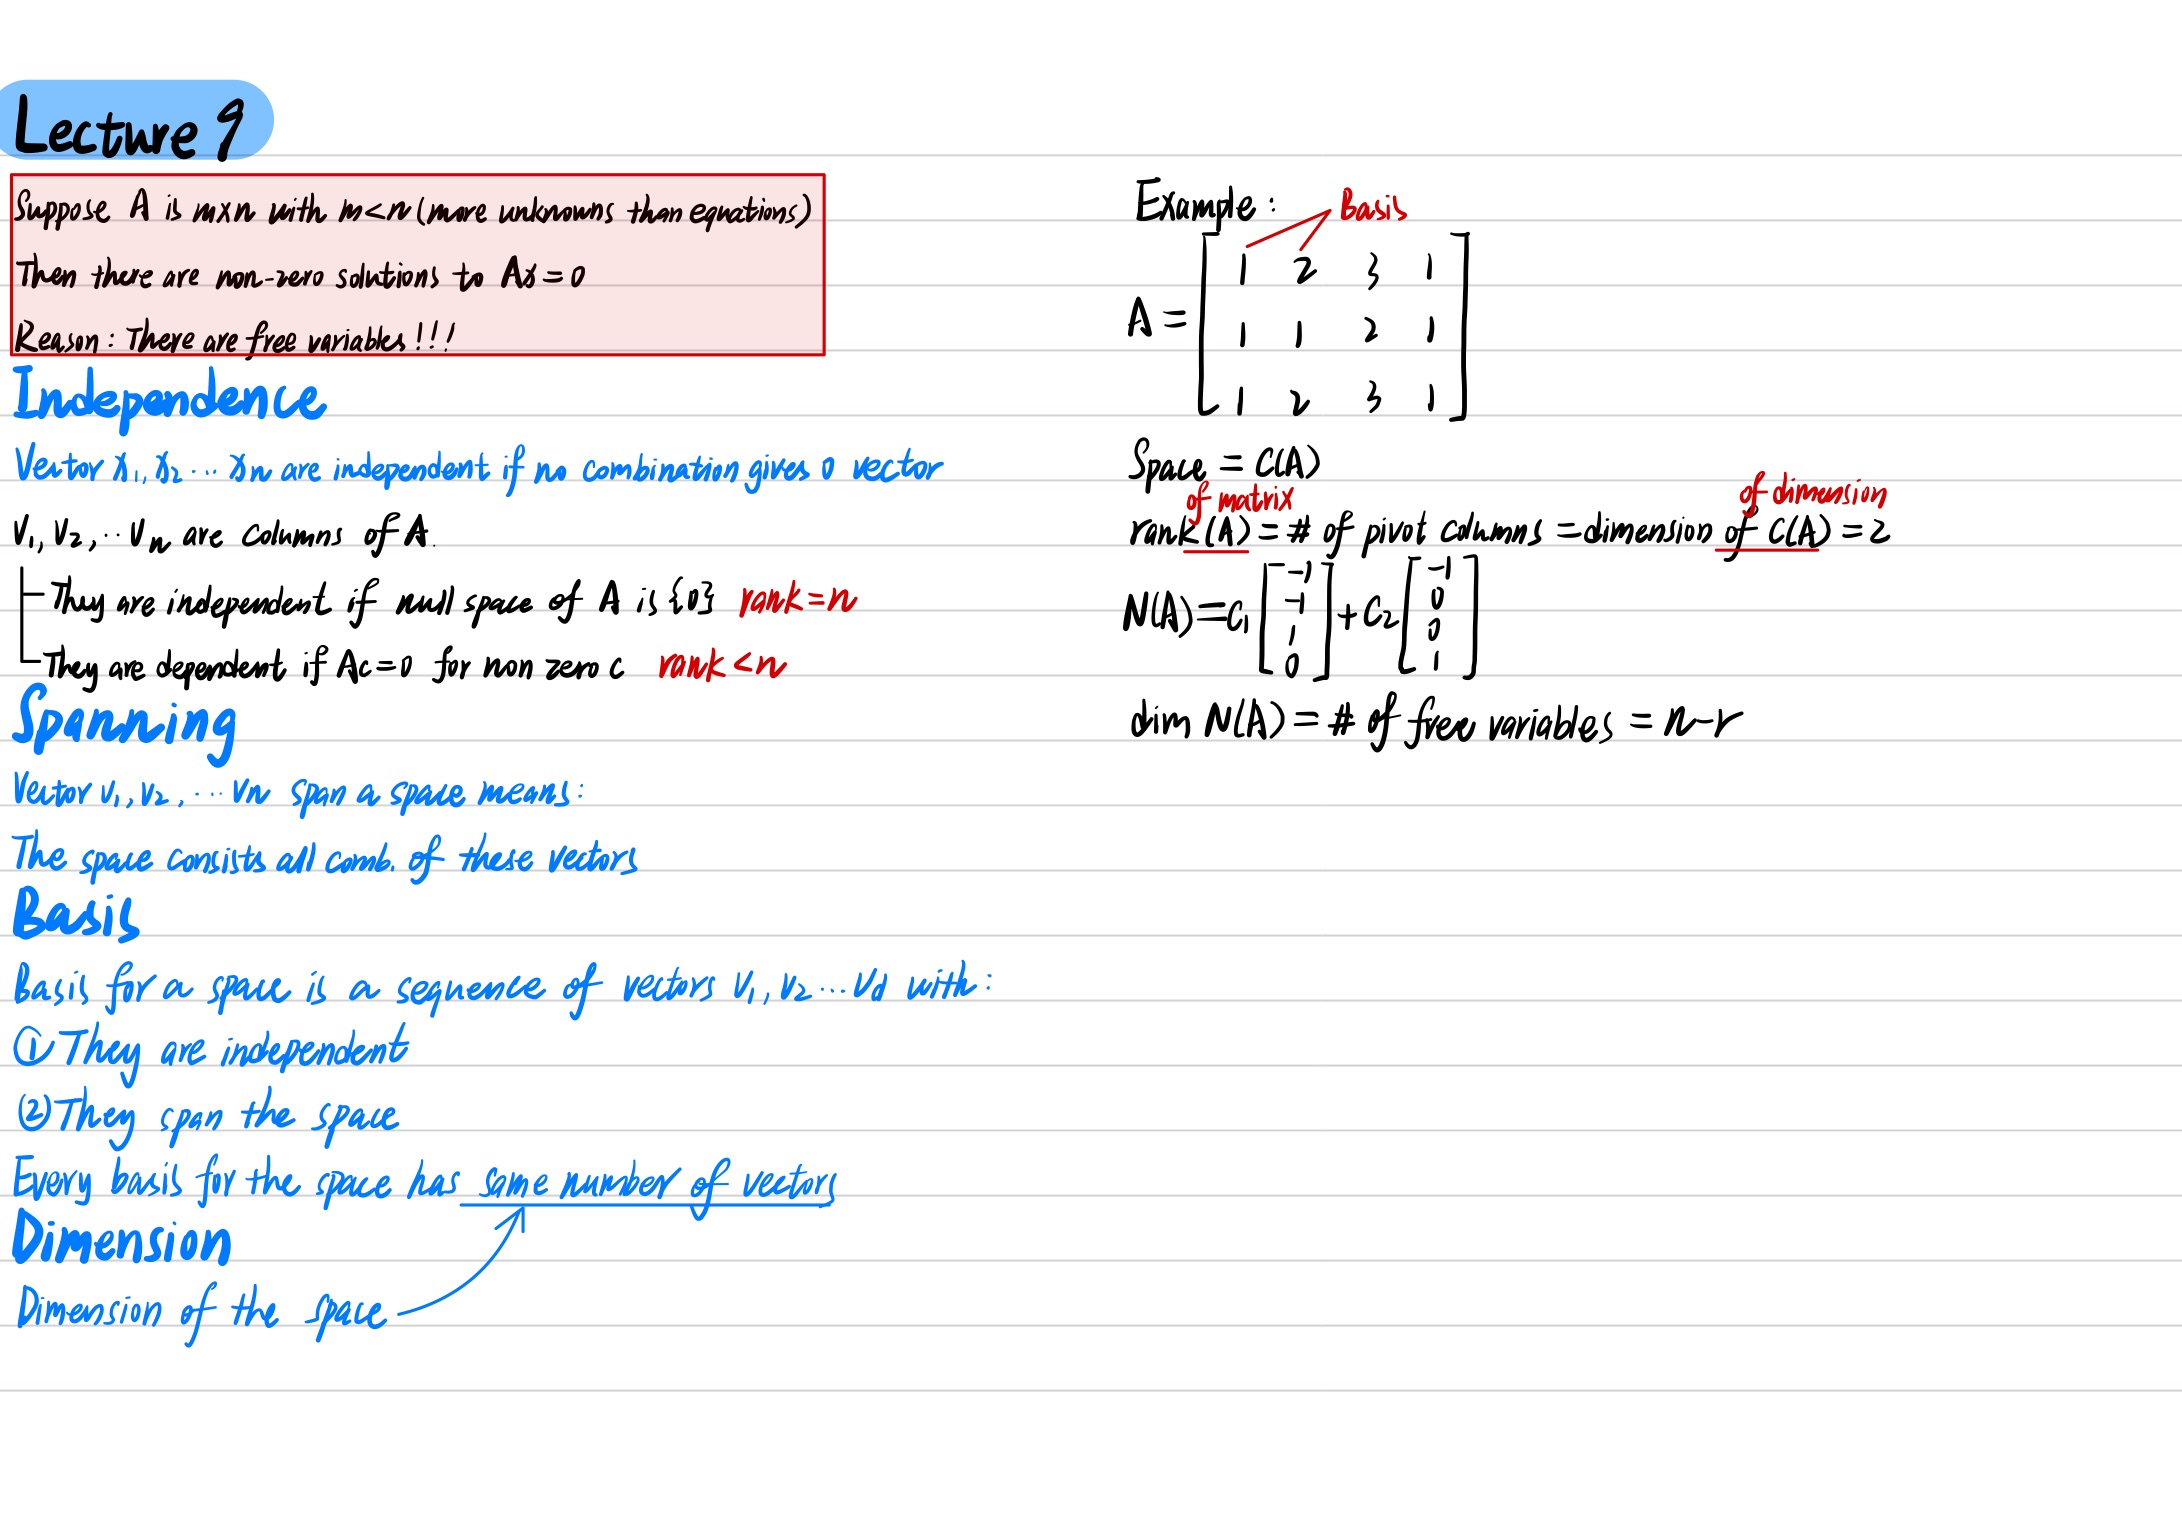 Lecture 9
Suppose A is m×n with m<n (more unknowns than equations)
Then there are non-zero solutions to Ax=0
Reason: There are free variables!!!
Independence
Vector x₁, x₂ ... xn are independent if no combination gives 0 vector
V₁, V₂, ·· Vn are columns of A.
They are independent if null space of A is {0} rank=n
They are dependent if Ac=0 for non zero c rank<n
Spanning
Vector v₁, v₂, ... vn span a space means:
The space consists all comb. of these vectors
Basis
Basis for a space is a sequence of vectors v₁, v₂ ... vd with:
① They are independent
(2) They span the space
Every basis for the space has same number of vectors
Dimension
Dimension of the space
Example:
Basis
A = [ 1 2 3 1
1 1 2 1
1 2 3 1 ]
Space = C(A)
of matrix of dimension
rank(A) = # of pivot columns = dimension of C(A) = 2
N(A) = C₁ [ -1 -1 1 0 ] + C₂ [ -1 0 0 1 ]
dim N(A) = # of free variables = n-r